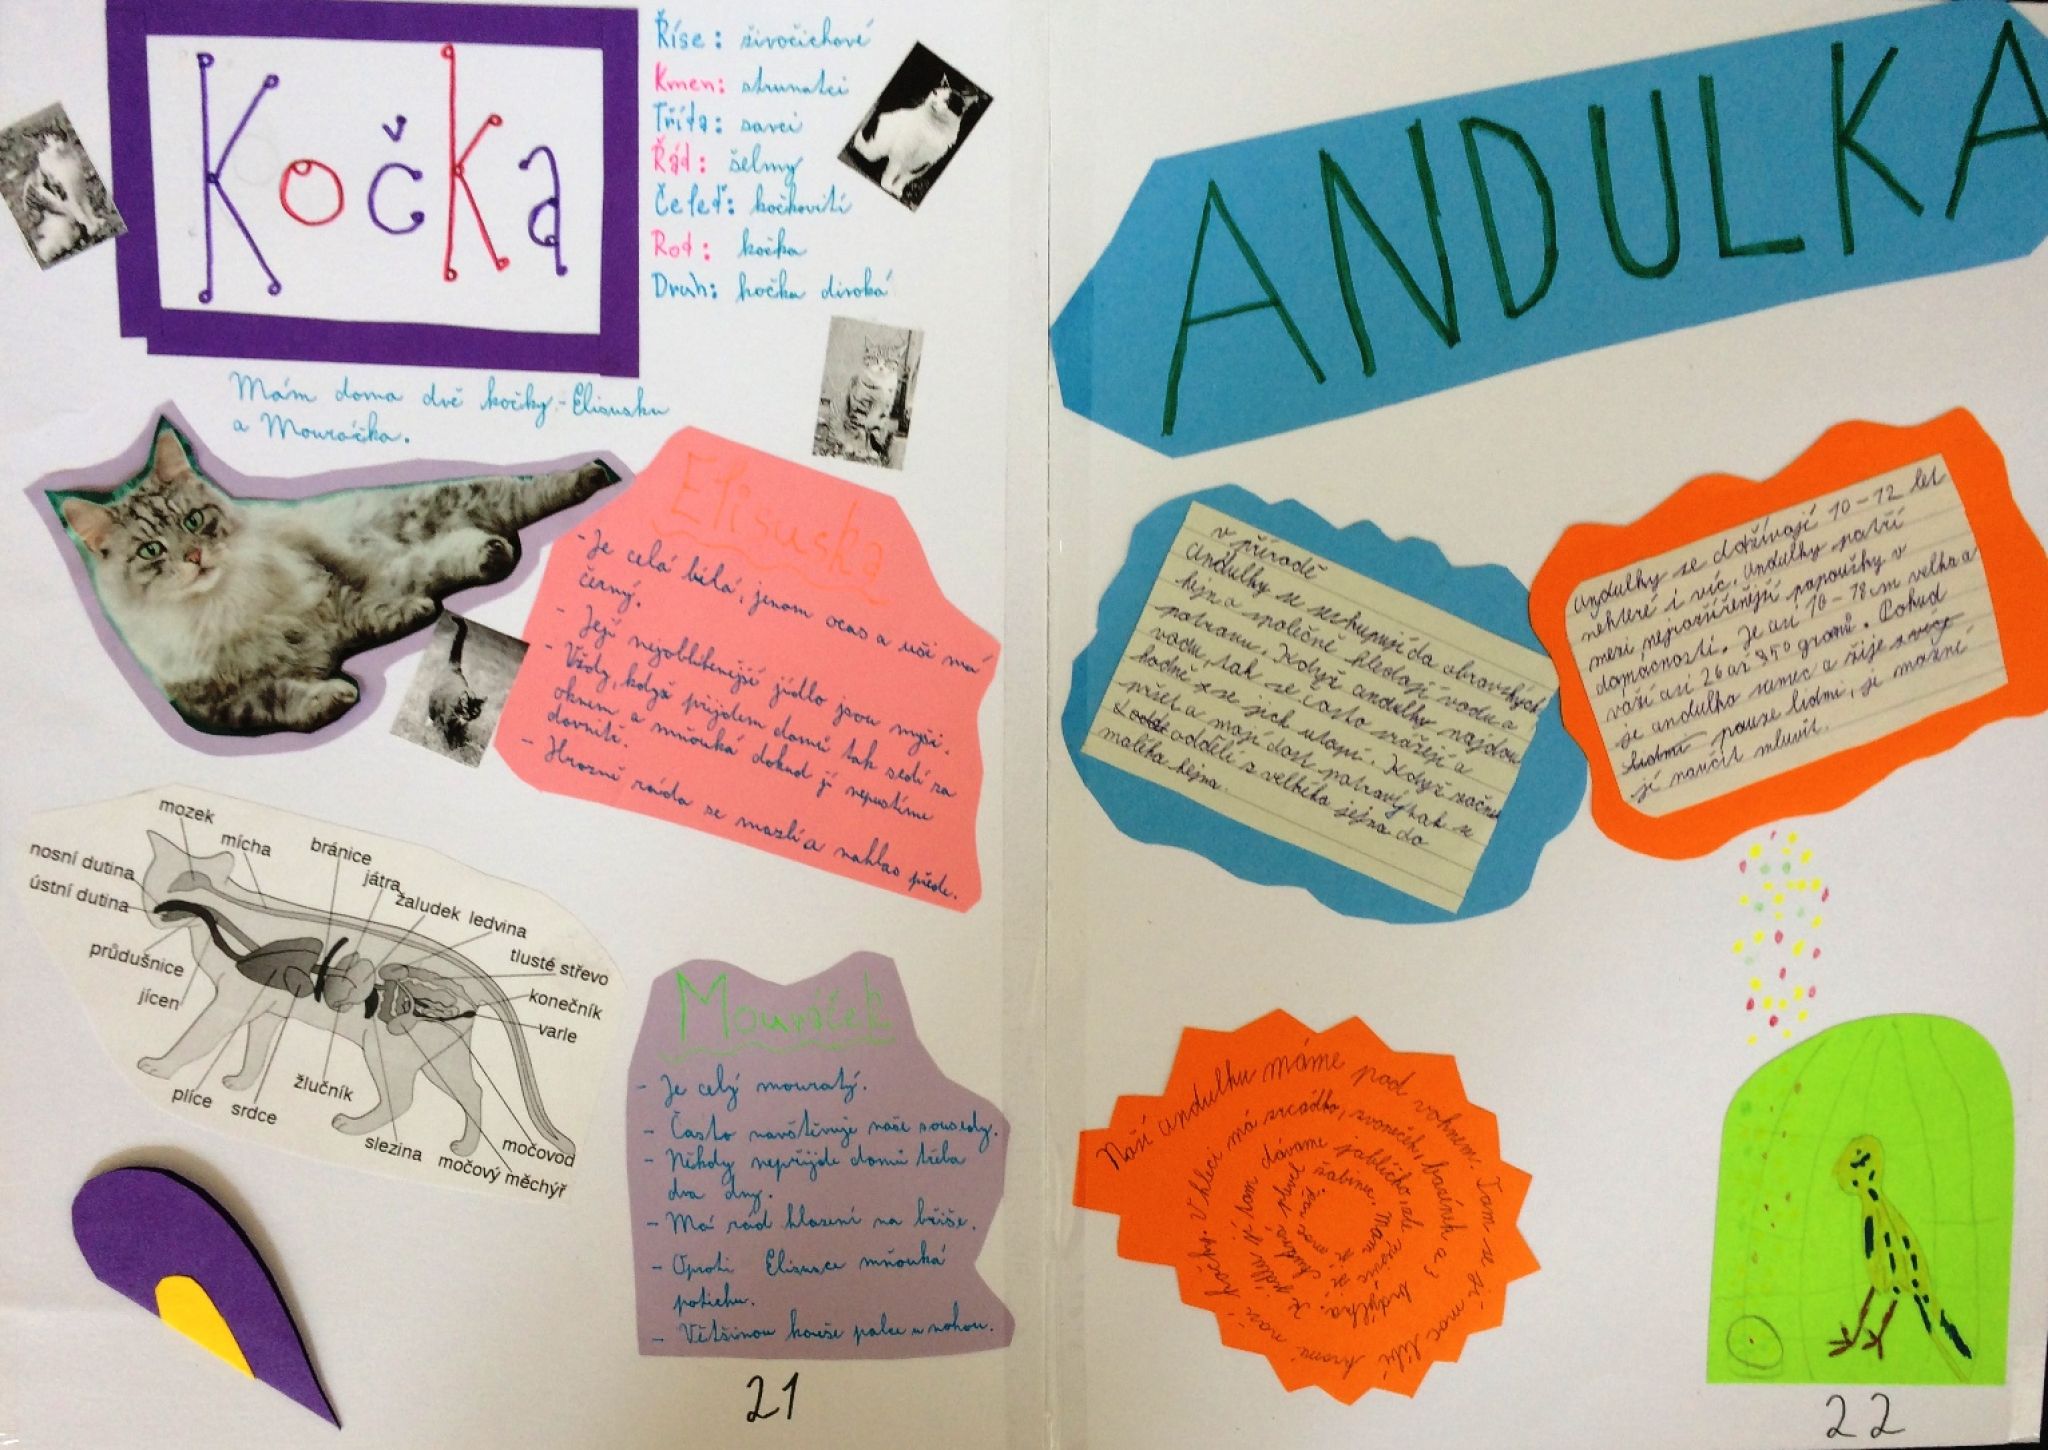 Kočka
Říše: živočichové
Kmen: strunatci
Třída: savci
Řád: šelmy
Čeleď: kočkovití
Rod: kočka
Druh: kočka divoká
Mám doma dvě kočky - Elisusku
a Mouráčka.
Elisuska
- Je celá bílá, jenom ocas a uši má
černý.
- Její nejoblíbenější jídlo jsou myši.
- Vždy, když přijdem domů tak sedí za
oknem a mňouká dokud jí nepustíme
dovnitř.
- Hrozně ráda se mazlí a nahlas přede.
mozek
mícha
bránice
játra
žaludek
ledvina
tlusté střevo
konečník
varle
nosní dutina
ústní dutina
průdušnice
jícen
plíce
srdce
žlučník
slezina
močový měchýř
močovod
Mouráček
- Je celý mouratý.
- Často navštěvuje naše sousedy.
- Někdy nepřijde domů třeba
dva dny.
- Má rád hlazení na břiše.
- Oproti Elisusce mňouká
potichu.
- Většinou kouše palce u nohou.
21
ANDULKA
v přírodě
Andulky se seskupují do obrovských
hejn a společně hledají vodu a
potravu. Když andulky najdou
vodu, tak se často srážejí a
hodně se jich utopí. Když začne
pršet a mají dost potravy, tak se
oddělí z velkého hejna do
malého hejna.
Andulky se dožívají 10-12 let
některé i víc. Andulky patří
mezi nejrozšířenější papoušky v
domácnosti. Je asi 10-18 cm velká a
váží asi 26 až gramů. Pokud
je andulka samec a žije s více
lidmi pouze lidmi, je možné
jí naučit mluvit.
Naší andulku máme pod oknem. Tam se jí moc líbí
kromě naší kočky. V kleci má zrcádko, zvoneček, bazének a 3 bidýlka.
K jídlu jí tam dáváme jablíčko, ale nejvíc
plevel žabinec. Mám jí
moc ráda.
22